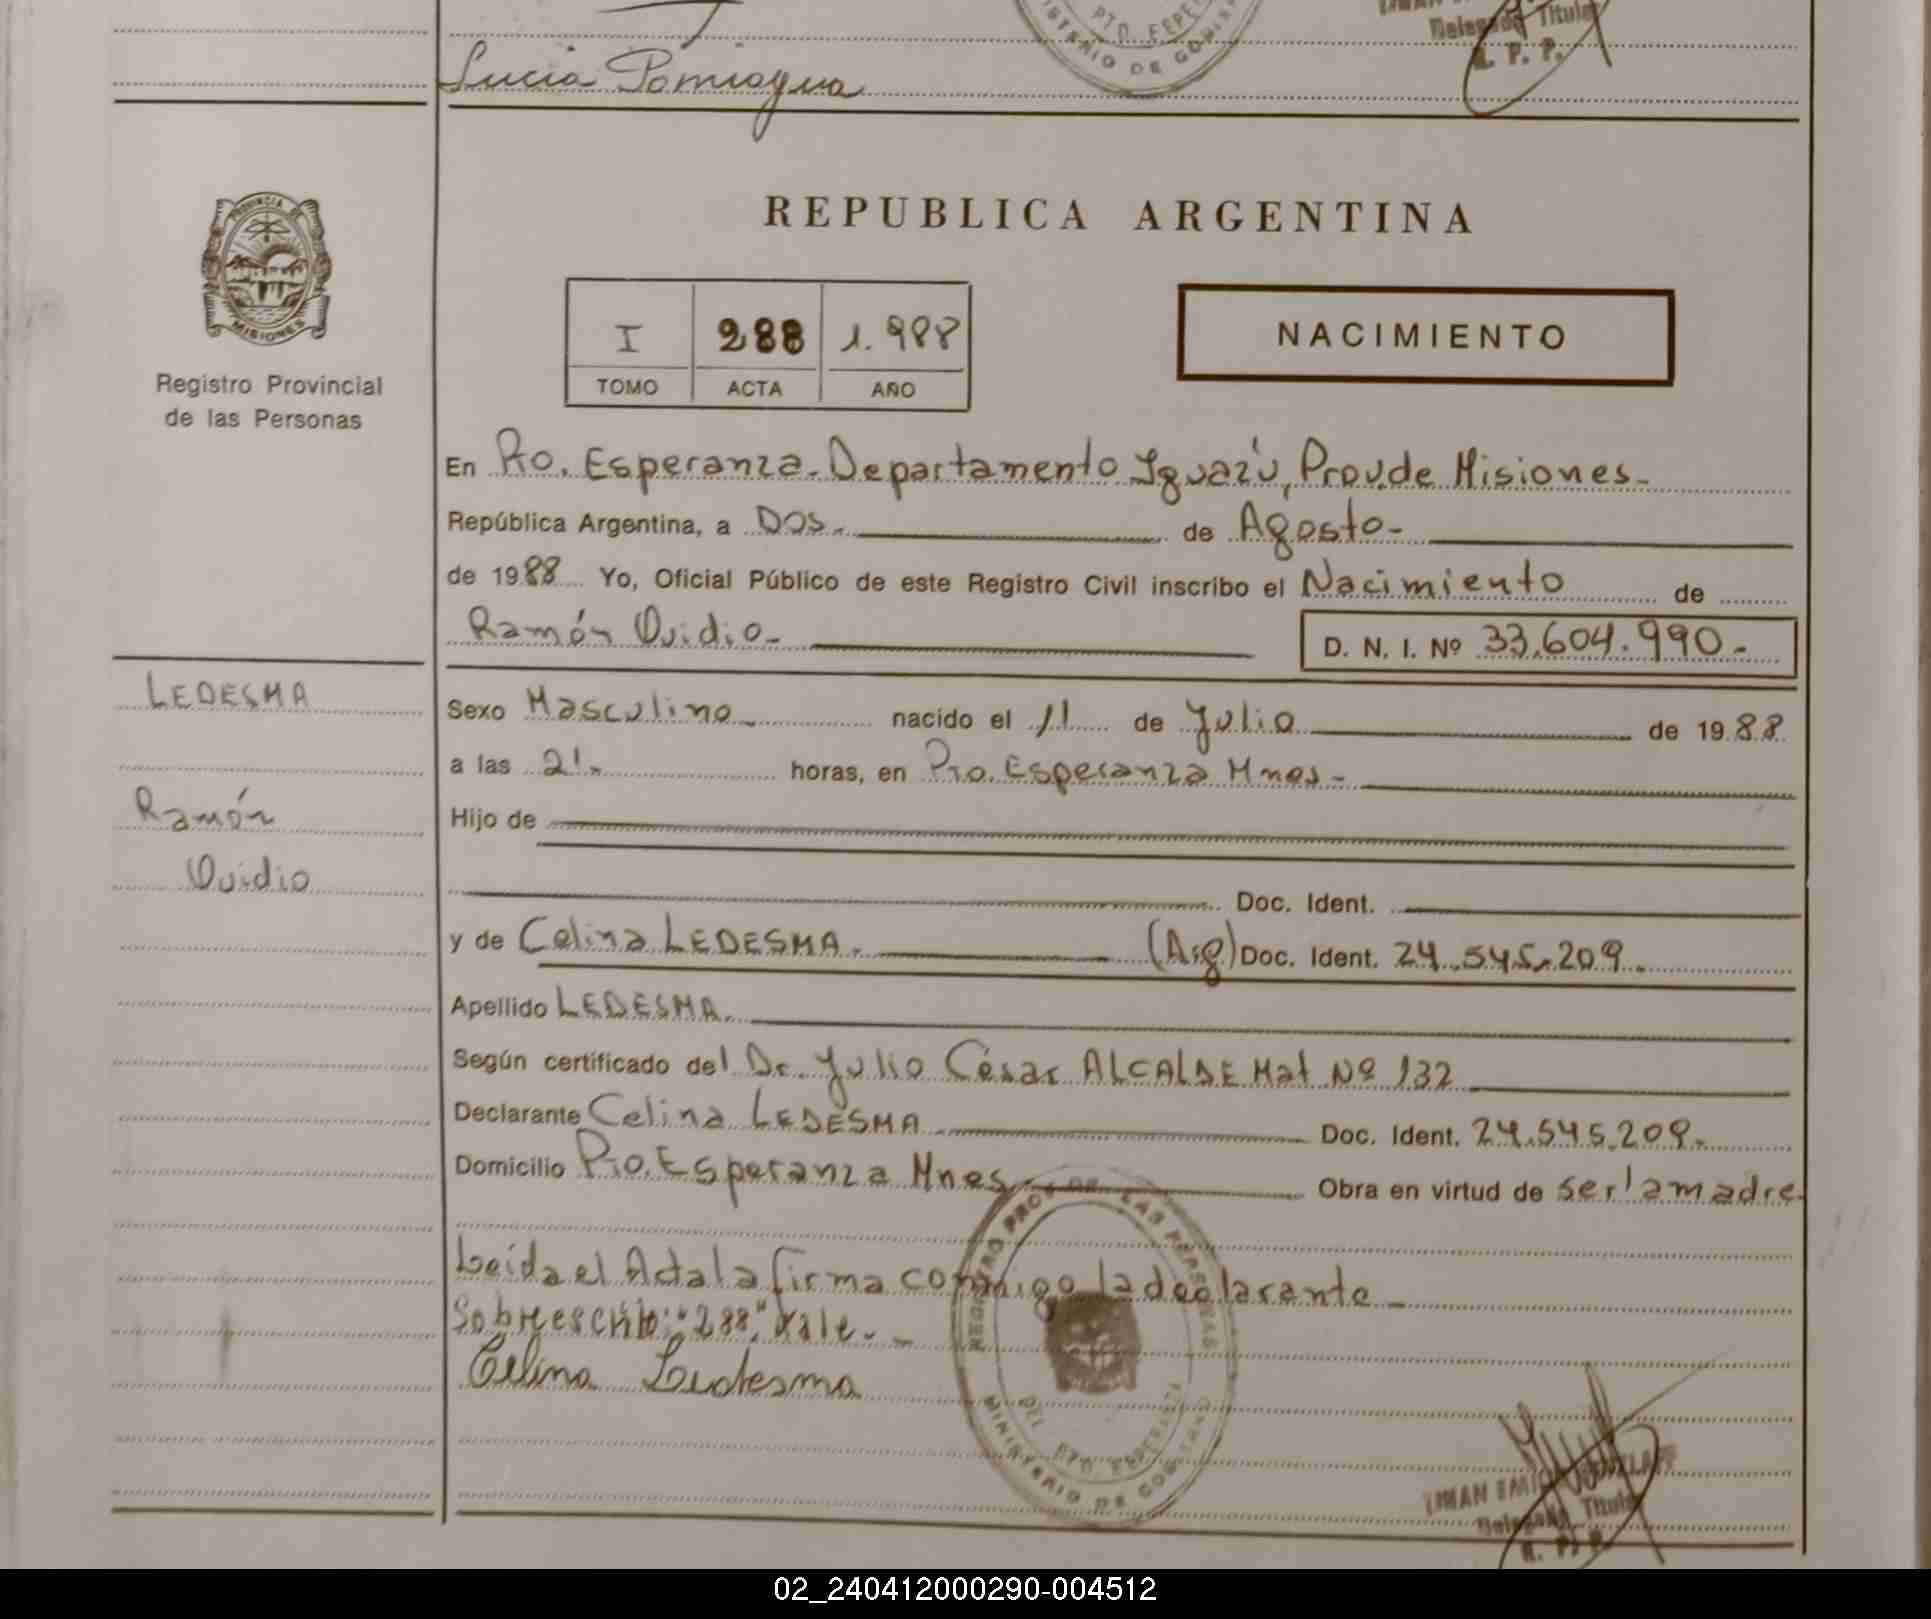 Lucia
PTO. ESPE
MINISTERIO DE GOBIER
Delegado Titular
R. P. P.
PROVINCIA DE
MISIONES
Registro Provincial
de las Personas
REPUBLICA ARGENTINA
I 288 1.988
TOMO ACTA AÑO
NACIMIENTO
En Pto. Esperanza. Departamento Iguazú, Prov. de Misiones-
República Argentina, a DOS.- de Agosto-
de 1988 Yo, Oficial Público de este Registro Civil inscribo el Nacimiento de
Ramón Ovidio-
D. N. I. Nº 33.604.990.-
LEDESMA
Ramón
Ovidio
Sexo Masculino- nacido el 11 de Julio de 1988
a las 21.- horas, en Pto. Esperanza Mnes-
Hijo de
Doc. Ident.
y de Celina LEDESMA.- (Arg) Doc. Ident. 24.545.209.
Apellido LEDESMA.
Según certificado del Dr. Julio César ALCALDE Mat Nº 132
Declarante Celina LEDESMA Doc. Ident. 24.545.209.
Domicilio Pto. Esperanza Mnes Obra en virtud de ser la madre
Leida el Acta la firma conmigo la declarante-
Sobreescrito: "288" Vale.-
Celina Ledesma
REGISTRO PROV. DE LAS PERSONAS
DEL PTO. ESPERANZA
MINISTERIO DE GOBIERNO
Delegado Titular
R. P. P.
02_240412000290-004512